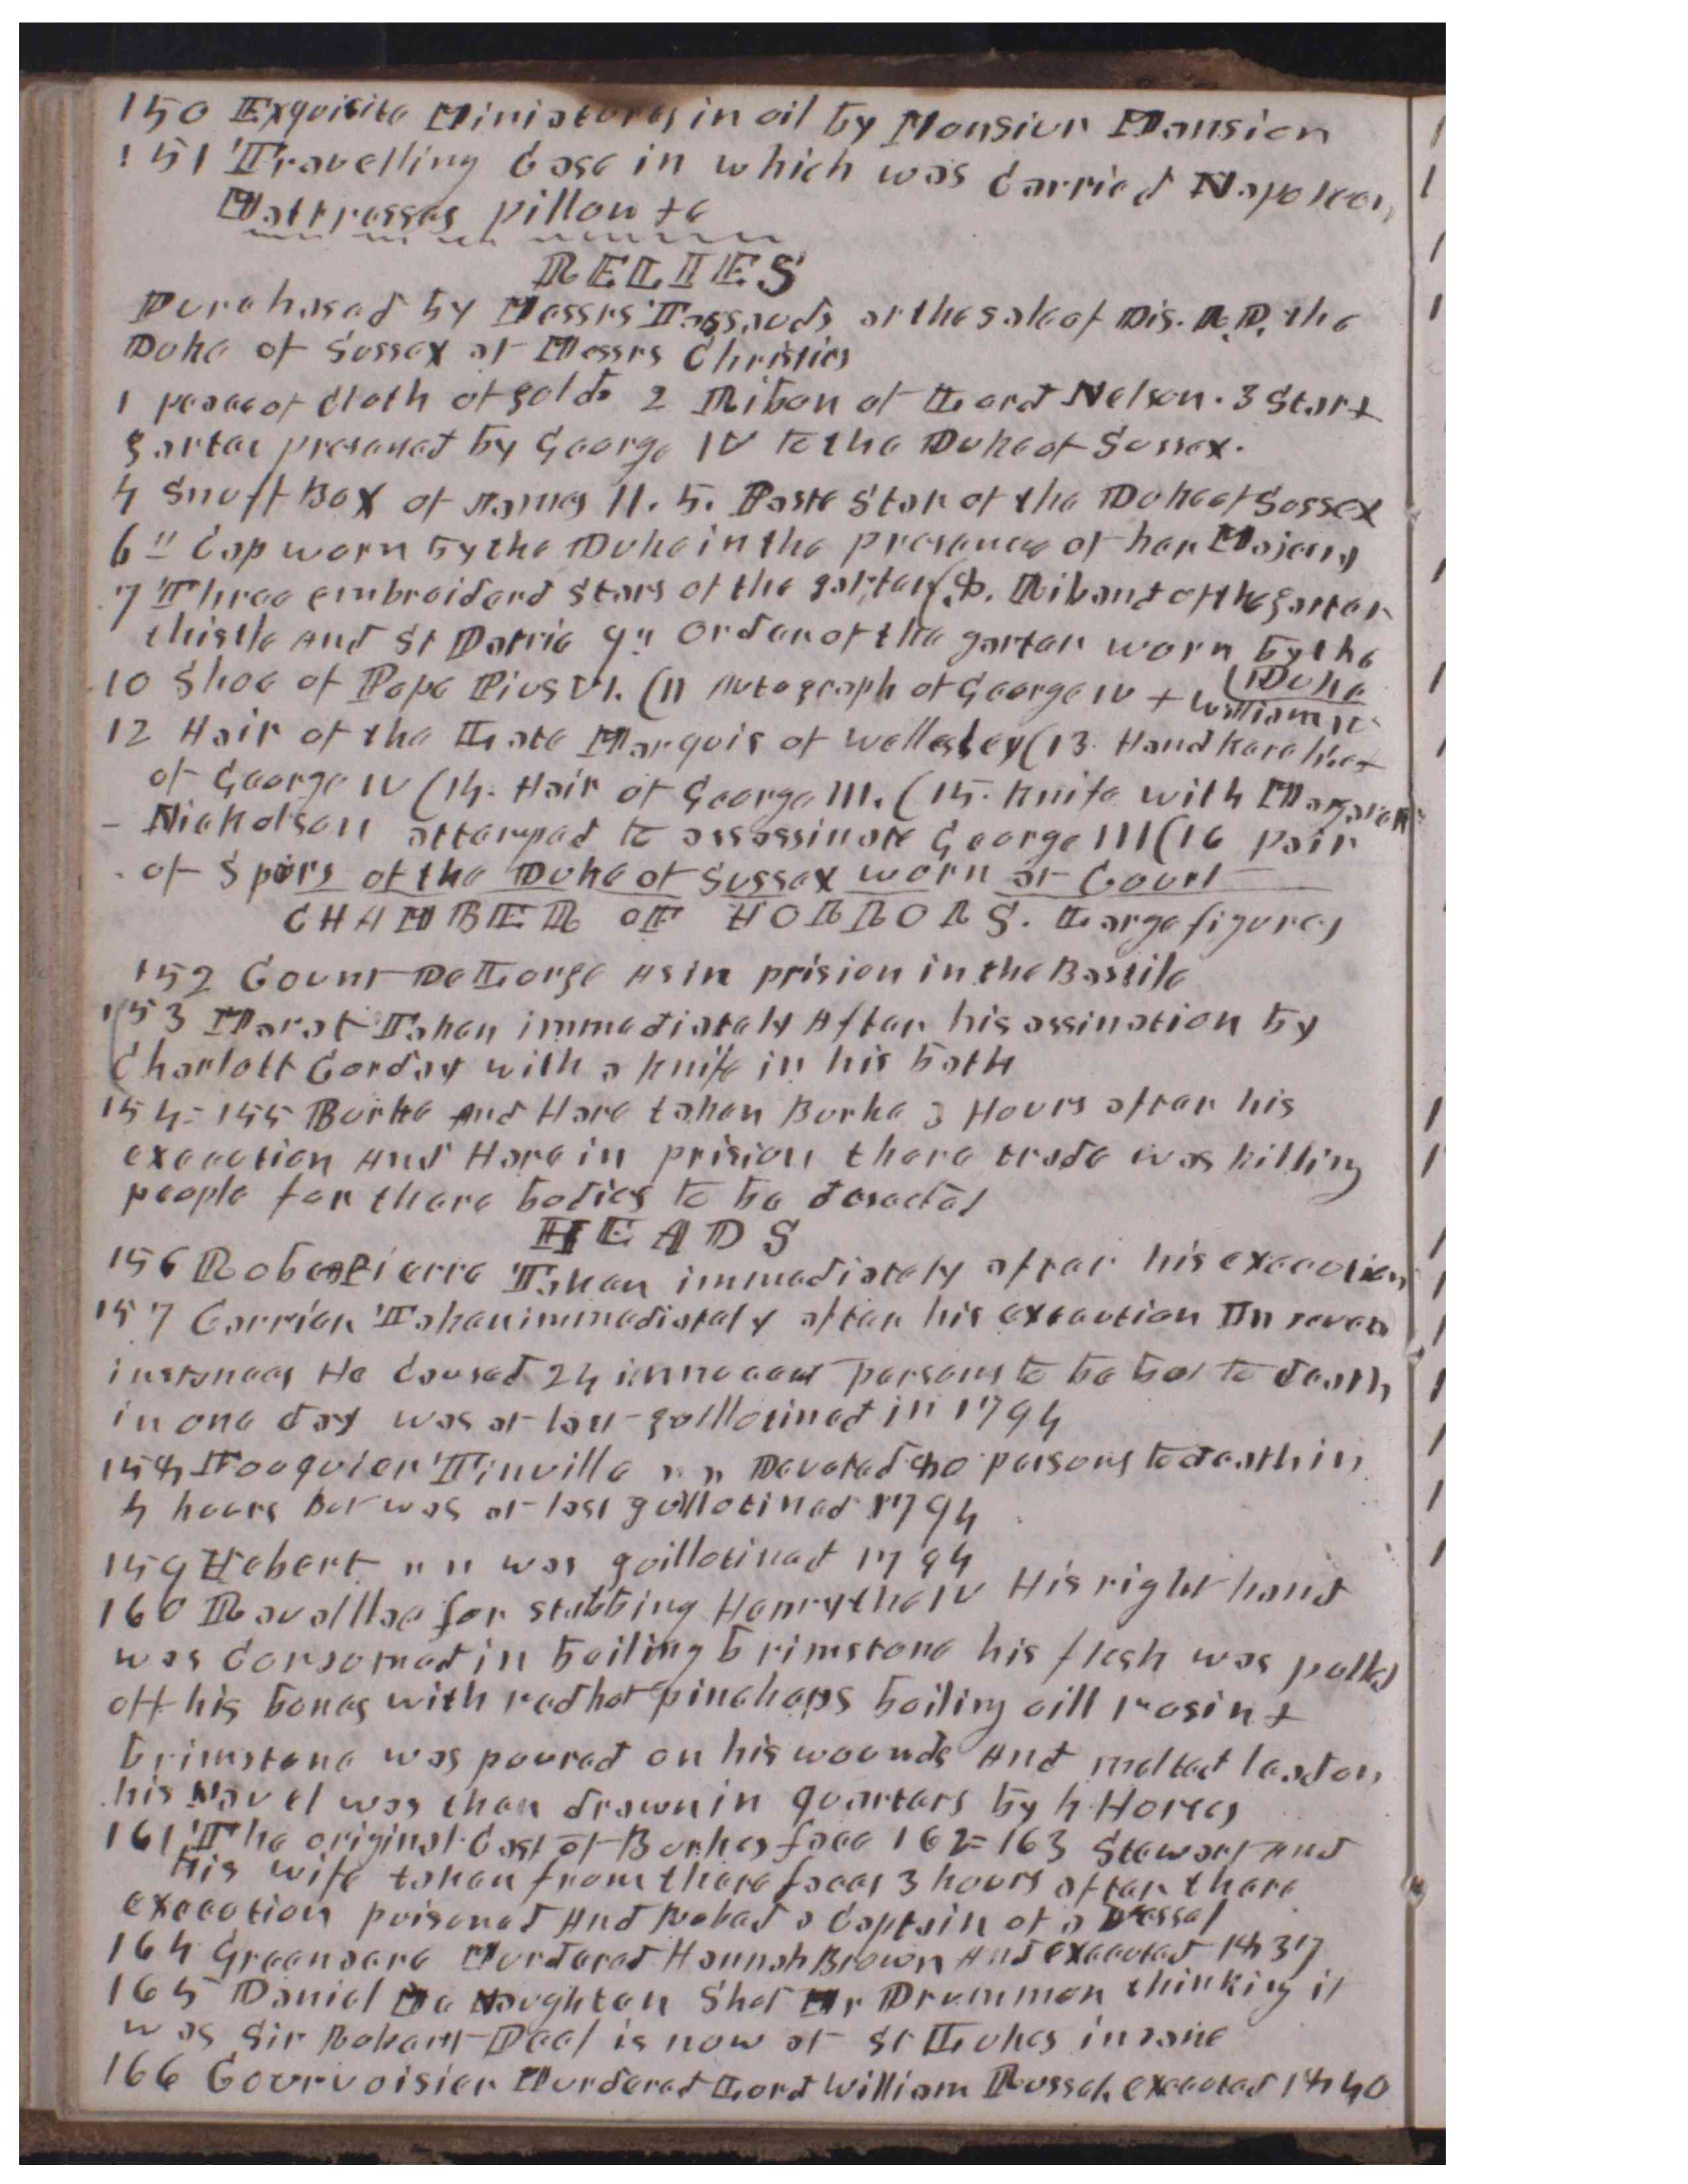 150 Exquisite Miniatures in oil by Monsiur Mansion
151 Travelling Case in which was Carried Napoleon,
Mattrasses pillow + c
RELICS
Purchased by Messrs Tassauds at the sale of His. R. H. the
Duke of Sussex at Messrs Christies
1 peace of Cloth of gold. 2 Riban of Lord Nelson. 3 Star +
garter presened by George IV to the Duke of Sussex.
4 Snuff Box of James II. 5. Paste Star of the Duke of Sussex
6 " Cap worn by the Duke in the presence of her Majesty
7 Three embroiderd Stars of the garter (8. Riband of the garter
thistle And St Patric 9 " Order of the garter worn by the
(Duke
10 Shoe of Pope Pius VI. (11 Autograph of George IV + William IV
12 Hair of the Late Marquis of Wellesley (13. Handkerchief
of George IV (14. Hair of George III. (15. Knife with Margaret
Nicholson attempad to assassinate George III (16 pair
of Spurs of the Duke of Sussex worn at Court
CHAMBER OF HORRORS. Large figures
152 Count De Lorge As in prision in the Bastile
153 Marat Taken immediately After his assination by
Charlott Corday with a knife in his bath
154 = 155 Burke And Hare taken Burke 3 Hours after his
execution And Hare in prision there trade was killing
people for there bodies to be desected
HEADS
156 Robespierre Taken immediately after his execution
157 Carrier Taken immediately after his execution In seven
instances He Caused 24 innocent persons to be to death
in one day was at last guillotined in 1794
158 Fouquier Tinville " " Devoted 80 persons to death in
4 hours but was at last guillotined 1794
159 Hebert " " was guillotined 1794
160 Ravaillac for stabbing Henry the IV His right hand
was Consomed in boiling brimstone his flesh was pulled
off his bones with red hot pinchers boiling oill rosin +
brimstone was poured on his wounds And melted lead on
his Navel was then drawn in quarters by 4 Horses
161 The original Cast of Burkes face 162 = 163 Stewart And
His wife taken from there faces 3 hours after there
execution poisoned And Robed a Captain of a Vessel
164 Greenacre Murdered Hannah Brown And executed 1837
165 Daniel Mc Naughten Shot Mr Drummon thinking it
was Sir Robert Peel is now at St Lukes insane
166 Courvoisier Murdered Lord William Russel executed 1840